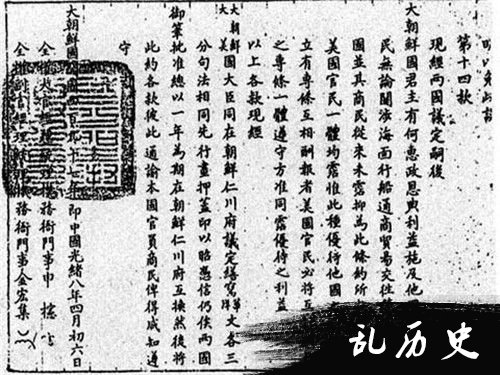 第十四款
現經兩國議定嗣後
大朝鮮國君主有何惠政恩典利益施及他
民無論關涉海面行船通商貿易交往
國並其商民從來未霑抑為此條約所
美國官民一體均霑惟此種優待他國
立有專條互相酬報者美國官民必將互
之專條一體遵守方准同霑優待之利益
以上各款現經
大朝鮮大美國大臣同在朝鮮仁川府議定繕寫華洋文各三
分句法相同先行畫押蓋印以昭憑信仍俟兩國
御筆批准總以一年為期在朝鮮仁川府互換然後將
此約各款彼此通諭本國官員商民俾得咸知遵
守
大朝鮮國開國四百九十一年即中國光緒八年四月初六日
全權大官經理統理機務衙門事申櫶
全權副官經理統理機務衙門事金宏集
乱历史